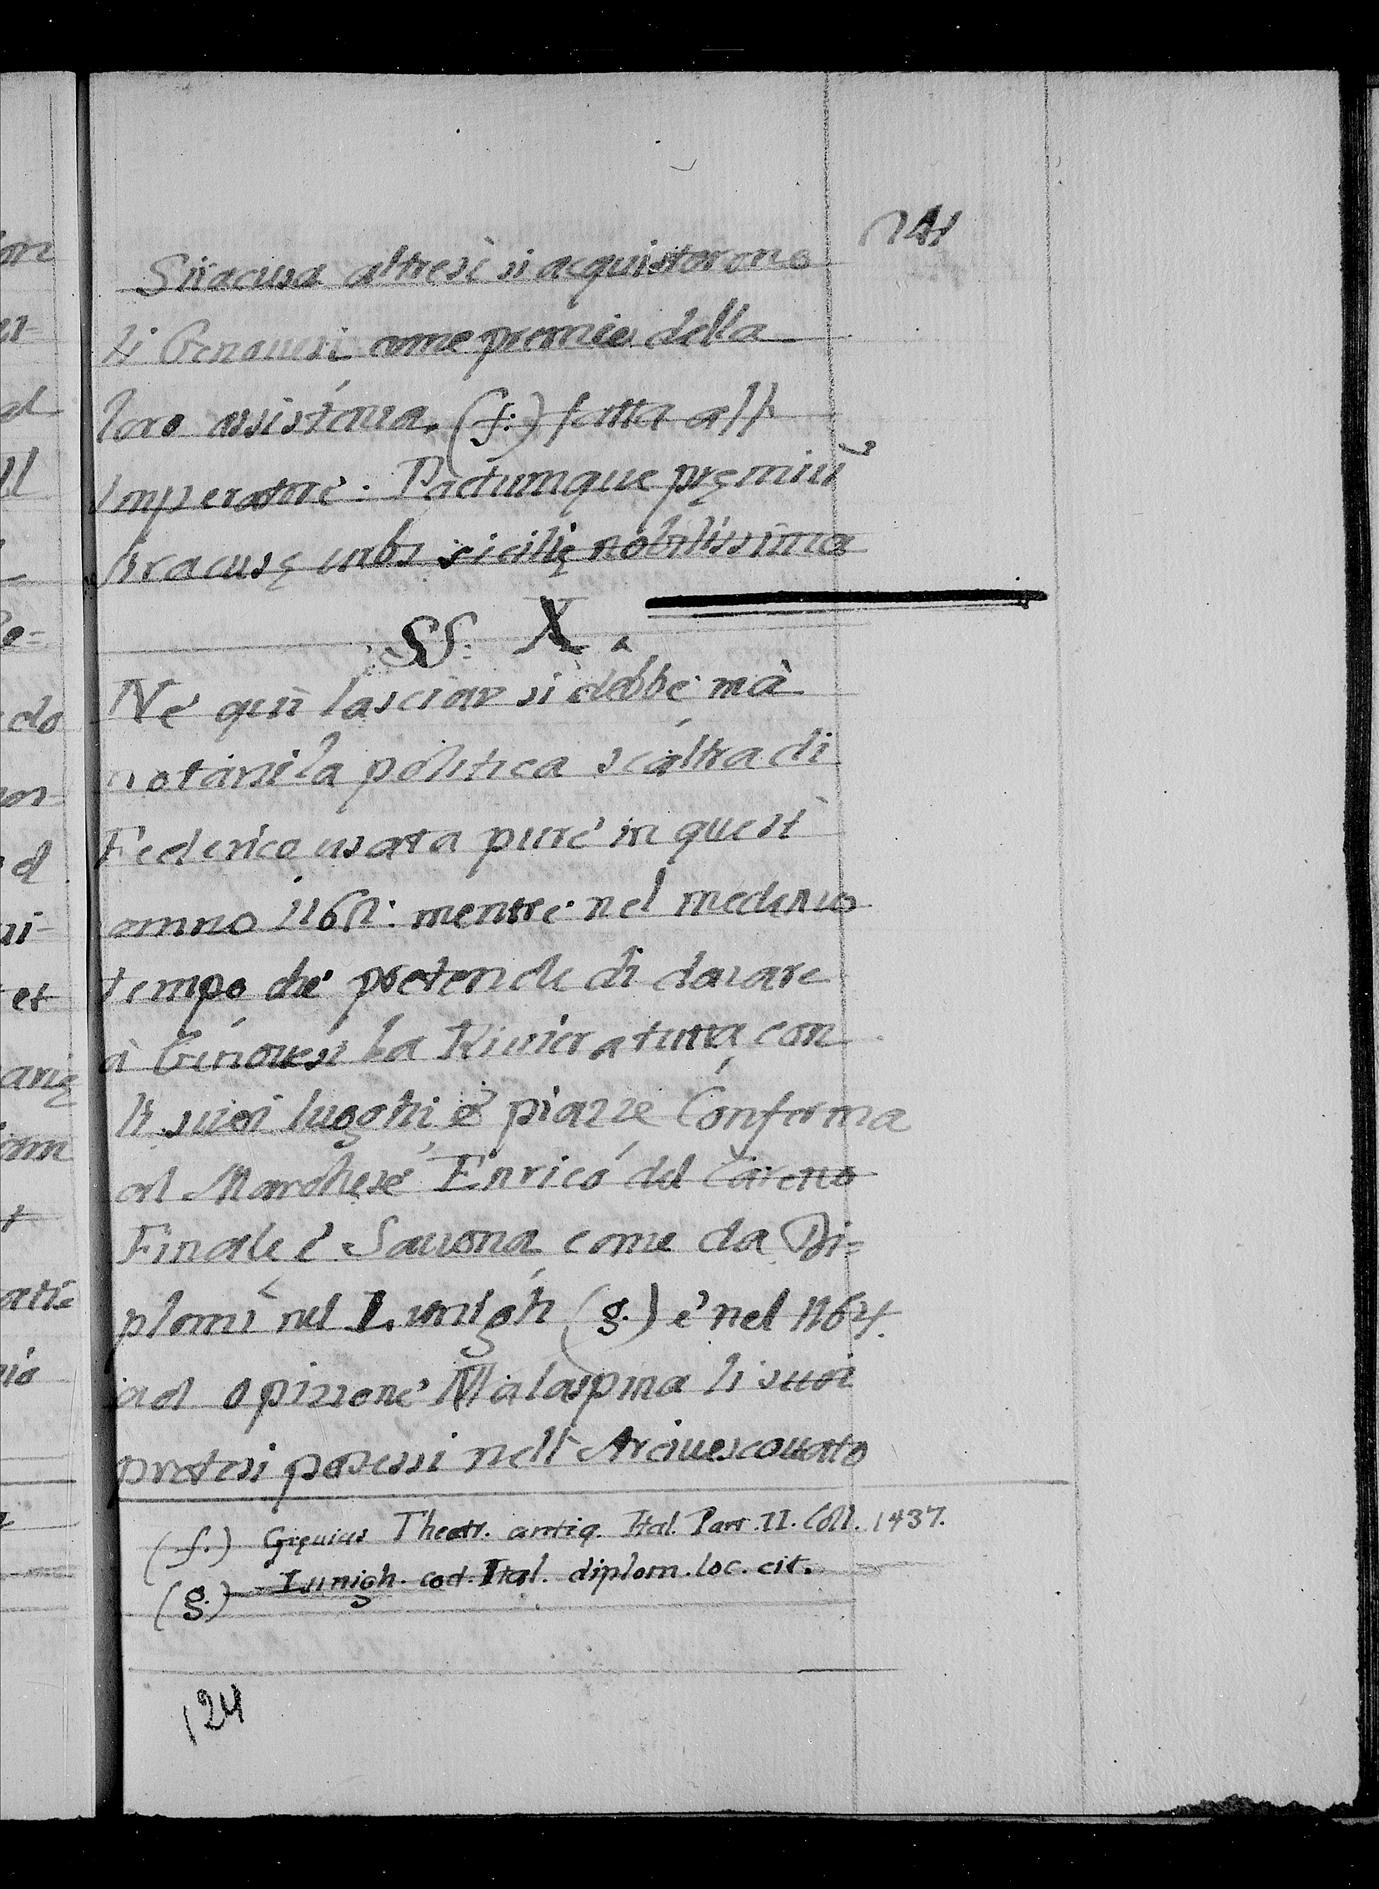 Siracusa altresì si acquistorono
li Genouesi come premio della
loro assistenza. (f.) fatta all'
Imperatore. Pactumque pręmiũ
siracusę urbs sicilię nobilissima
§§. X.
Nè quì lasciar si debbe mà
notarsi la politica scáltra di
Federico usata purè in quest'
anno 1162: mentre nel medemo
tempo che pretende di donare
à Genouesi la Riuiera tutta con
li suoi luoghi è piazze Conferma
al Marchese Enrico del Careno
Finale è Sauona come da Di=
plomi nel Lunigh (g.) è nel 1164.
ad Opizzone Malaspina li suoi
pretesi posessi nell' Arciuescouato
(f.) Gręuius Theatr. antiq. Ital. Part. II. Coll. 1437.
(g.) Lunigh. cod. Ital. diplom. loc. cit.
124